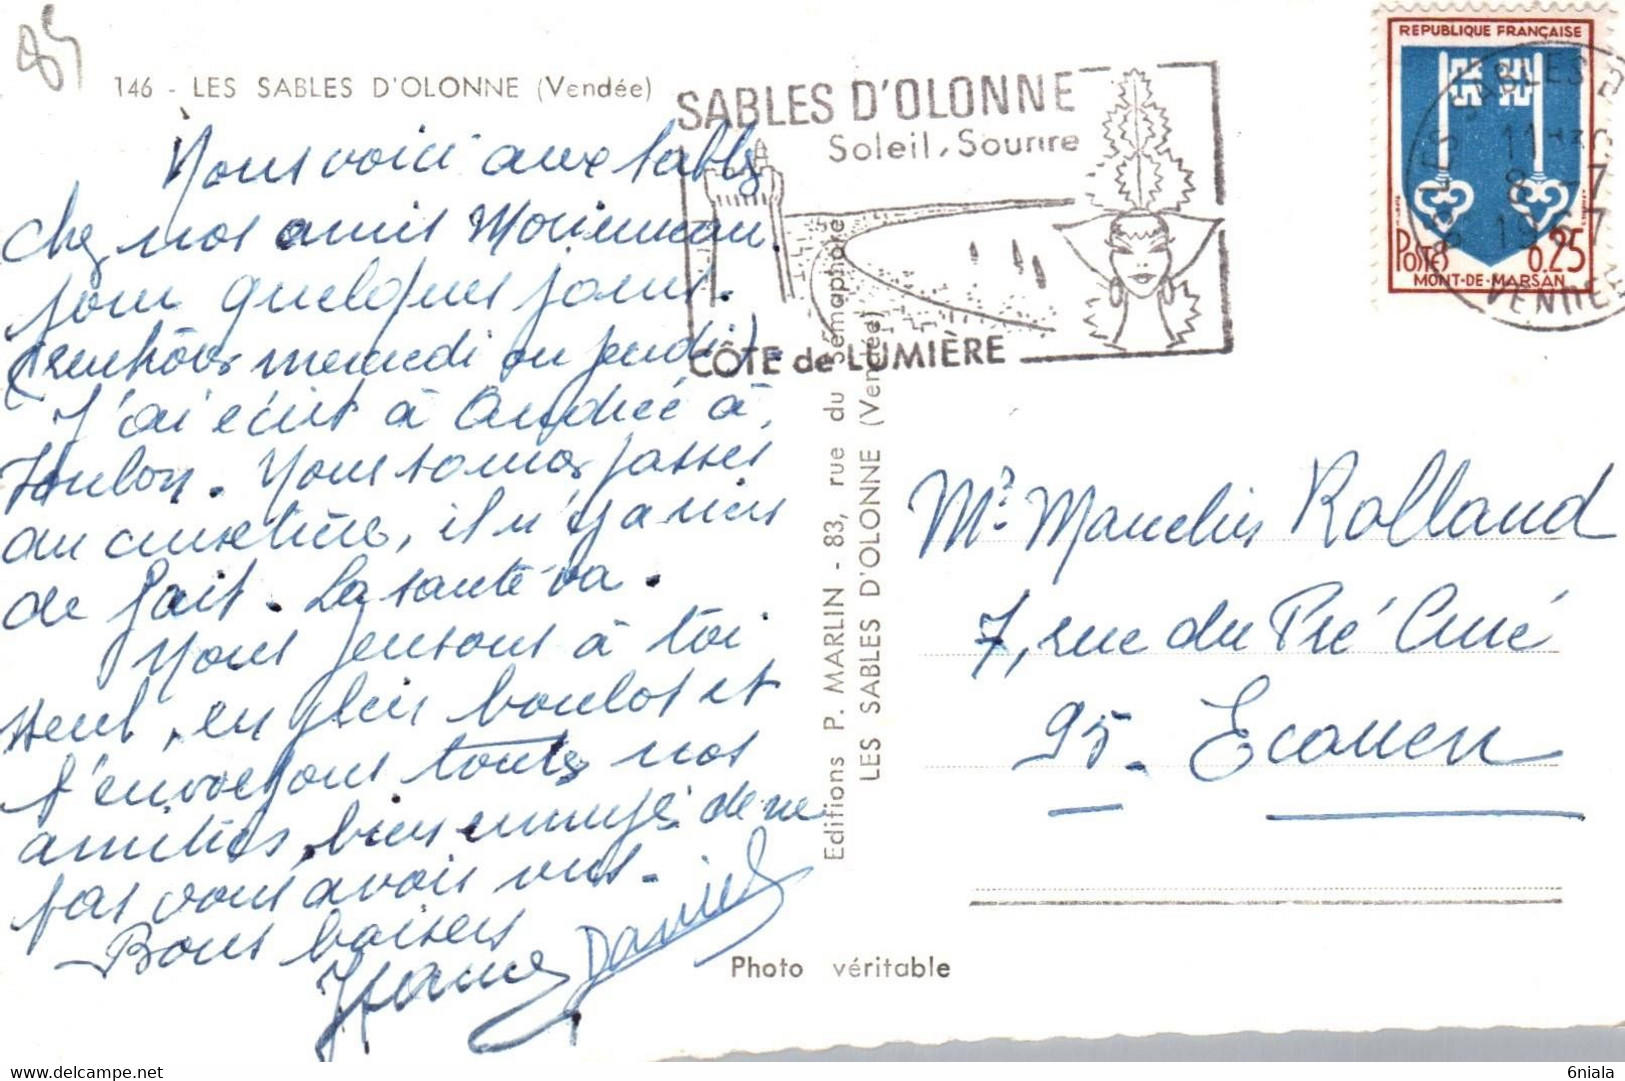 85
146 - LES SABLES D'OLONNE (Vendée)
SABLES D'OLONNE
Soleil, Sourire
CÔTE de LUMIÈRE
REPUBLIQUE FRANÇAISE
POSTES
0.25
MONT-DE-MARSAN
LES SABLES D
8 - 7
1967
VENDEE
Nous voici aux Sables
chez nos amis
pour quelques jours.
(rentrons mercredi ou jeudi).
J'ai écrit à Andrée à
Toulon. Nous sommes passés
au cimetière, il n'y a rien
de fait. La santé va.
Nous pensons à toi
seul, en plein boulot et
t'envoyons toutes nos
amitiés, bien ennuyés de ne
pas vous avoir vus.
Bons baisers
Daniel
Editions P. MARLIN - 83, rue du Sémaphore
LES SABLES D'OLONNE (Vendée)
Mr Rolland
7, rue du Pré Curé
95 - Ecouen
Photo véritable
6niala